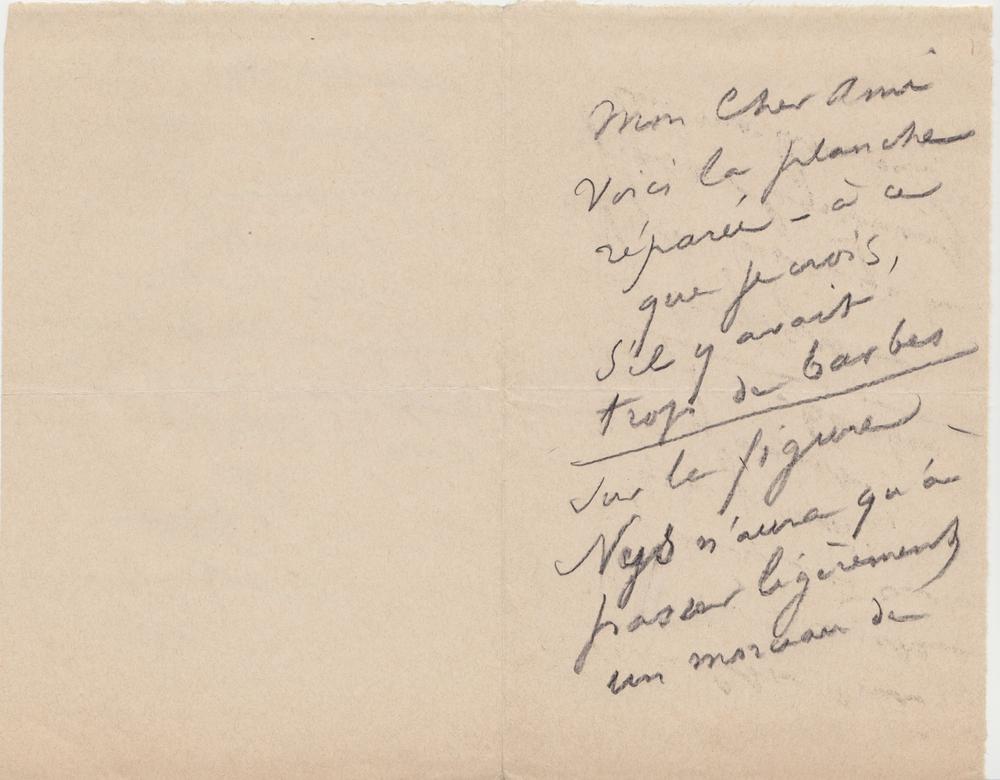 Mon Cher Ami
Voici la planche
réparée - à ce
que je crois,
S'il y avait
trop de barbes
sur la figure
Nys n'aura qu'à
passer légèrement
un morceau de